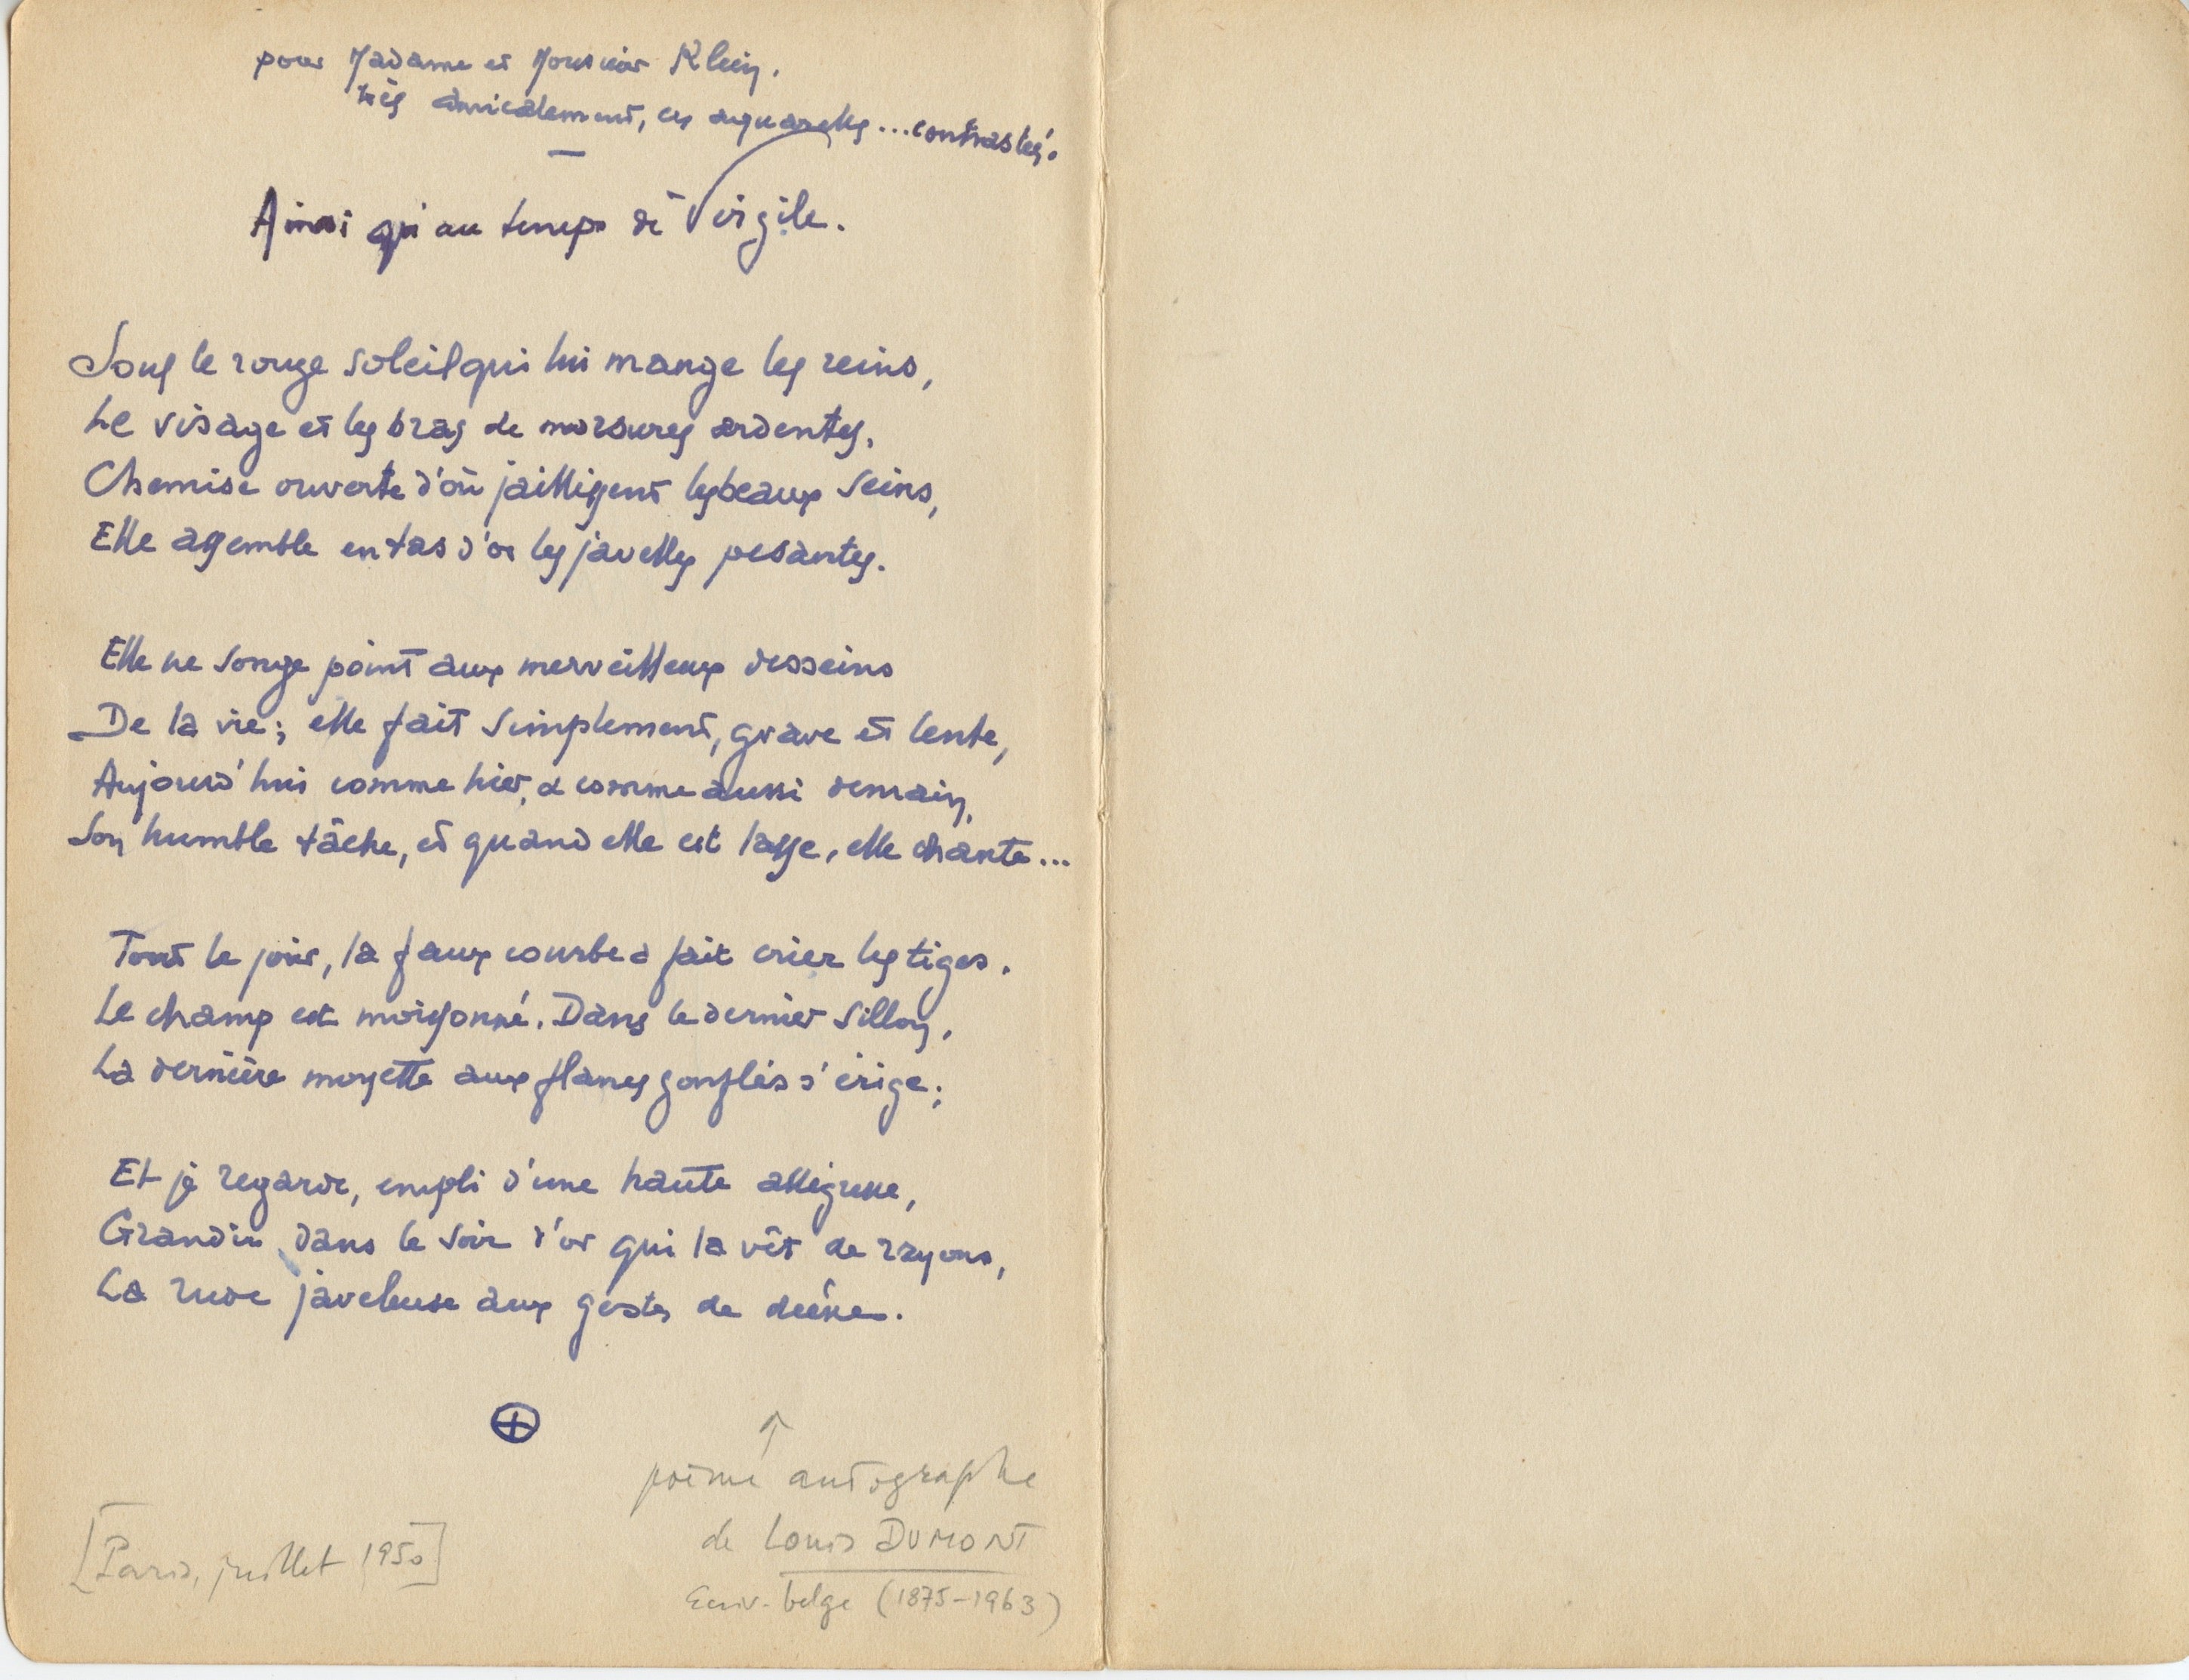 pour Madame et Monsieur Klein.
très amicalement, ces aquarelles ... contrastées.
Ainsi qu'au temps de Virgile.
Sous le rouge soleil qui lui mange les reins,
Le visage et les bras de morsures ardentes,
Chemise ouverte d'où jaillissent les beaux seins,
Elle assemble en tas d'or les javelles pesantes.
Elle ne songe point aux merveilleux desseins
De la vie ; elle fait simplement, grave et lente,
Aujourd'hui comme hier, & comme aussi demain,
Son humble tâche, et quand elle est lasse, elle chante ...
Tout le jour, la faux courbe a fait crier les tiges.
Le champ est moissonné. Dans le dernier sillon,
La dernière moyette aux flancs gonflés s'érige ;
Et je regarde, empli d'une haute allégresse,
Grandir dans le soir d'or qui la vêt de rayons,
La rude javeleuse aux gestes de déesse.
poème autographe
de Louis DUMONT
Ecriv. belge (1875-1963)
[Paris, juillet 1950]